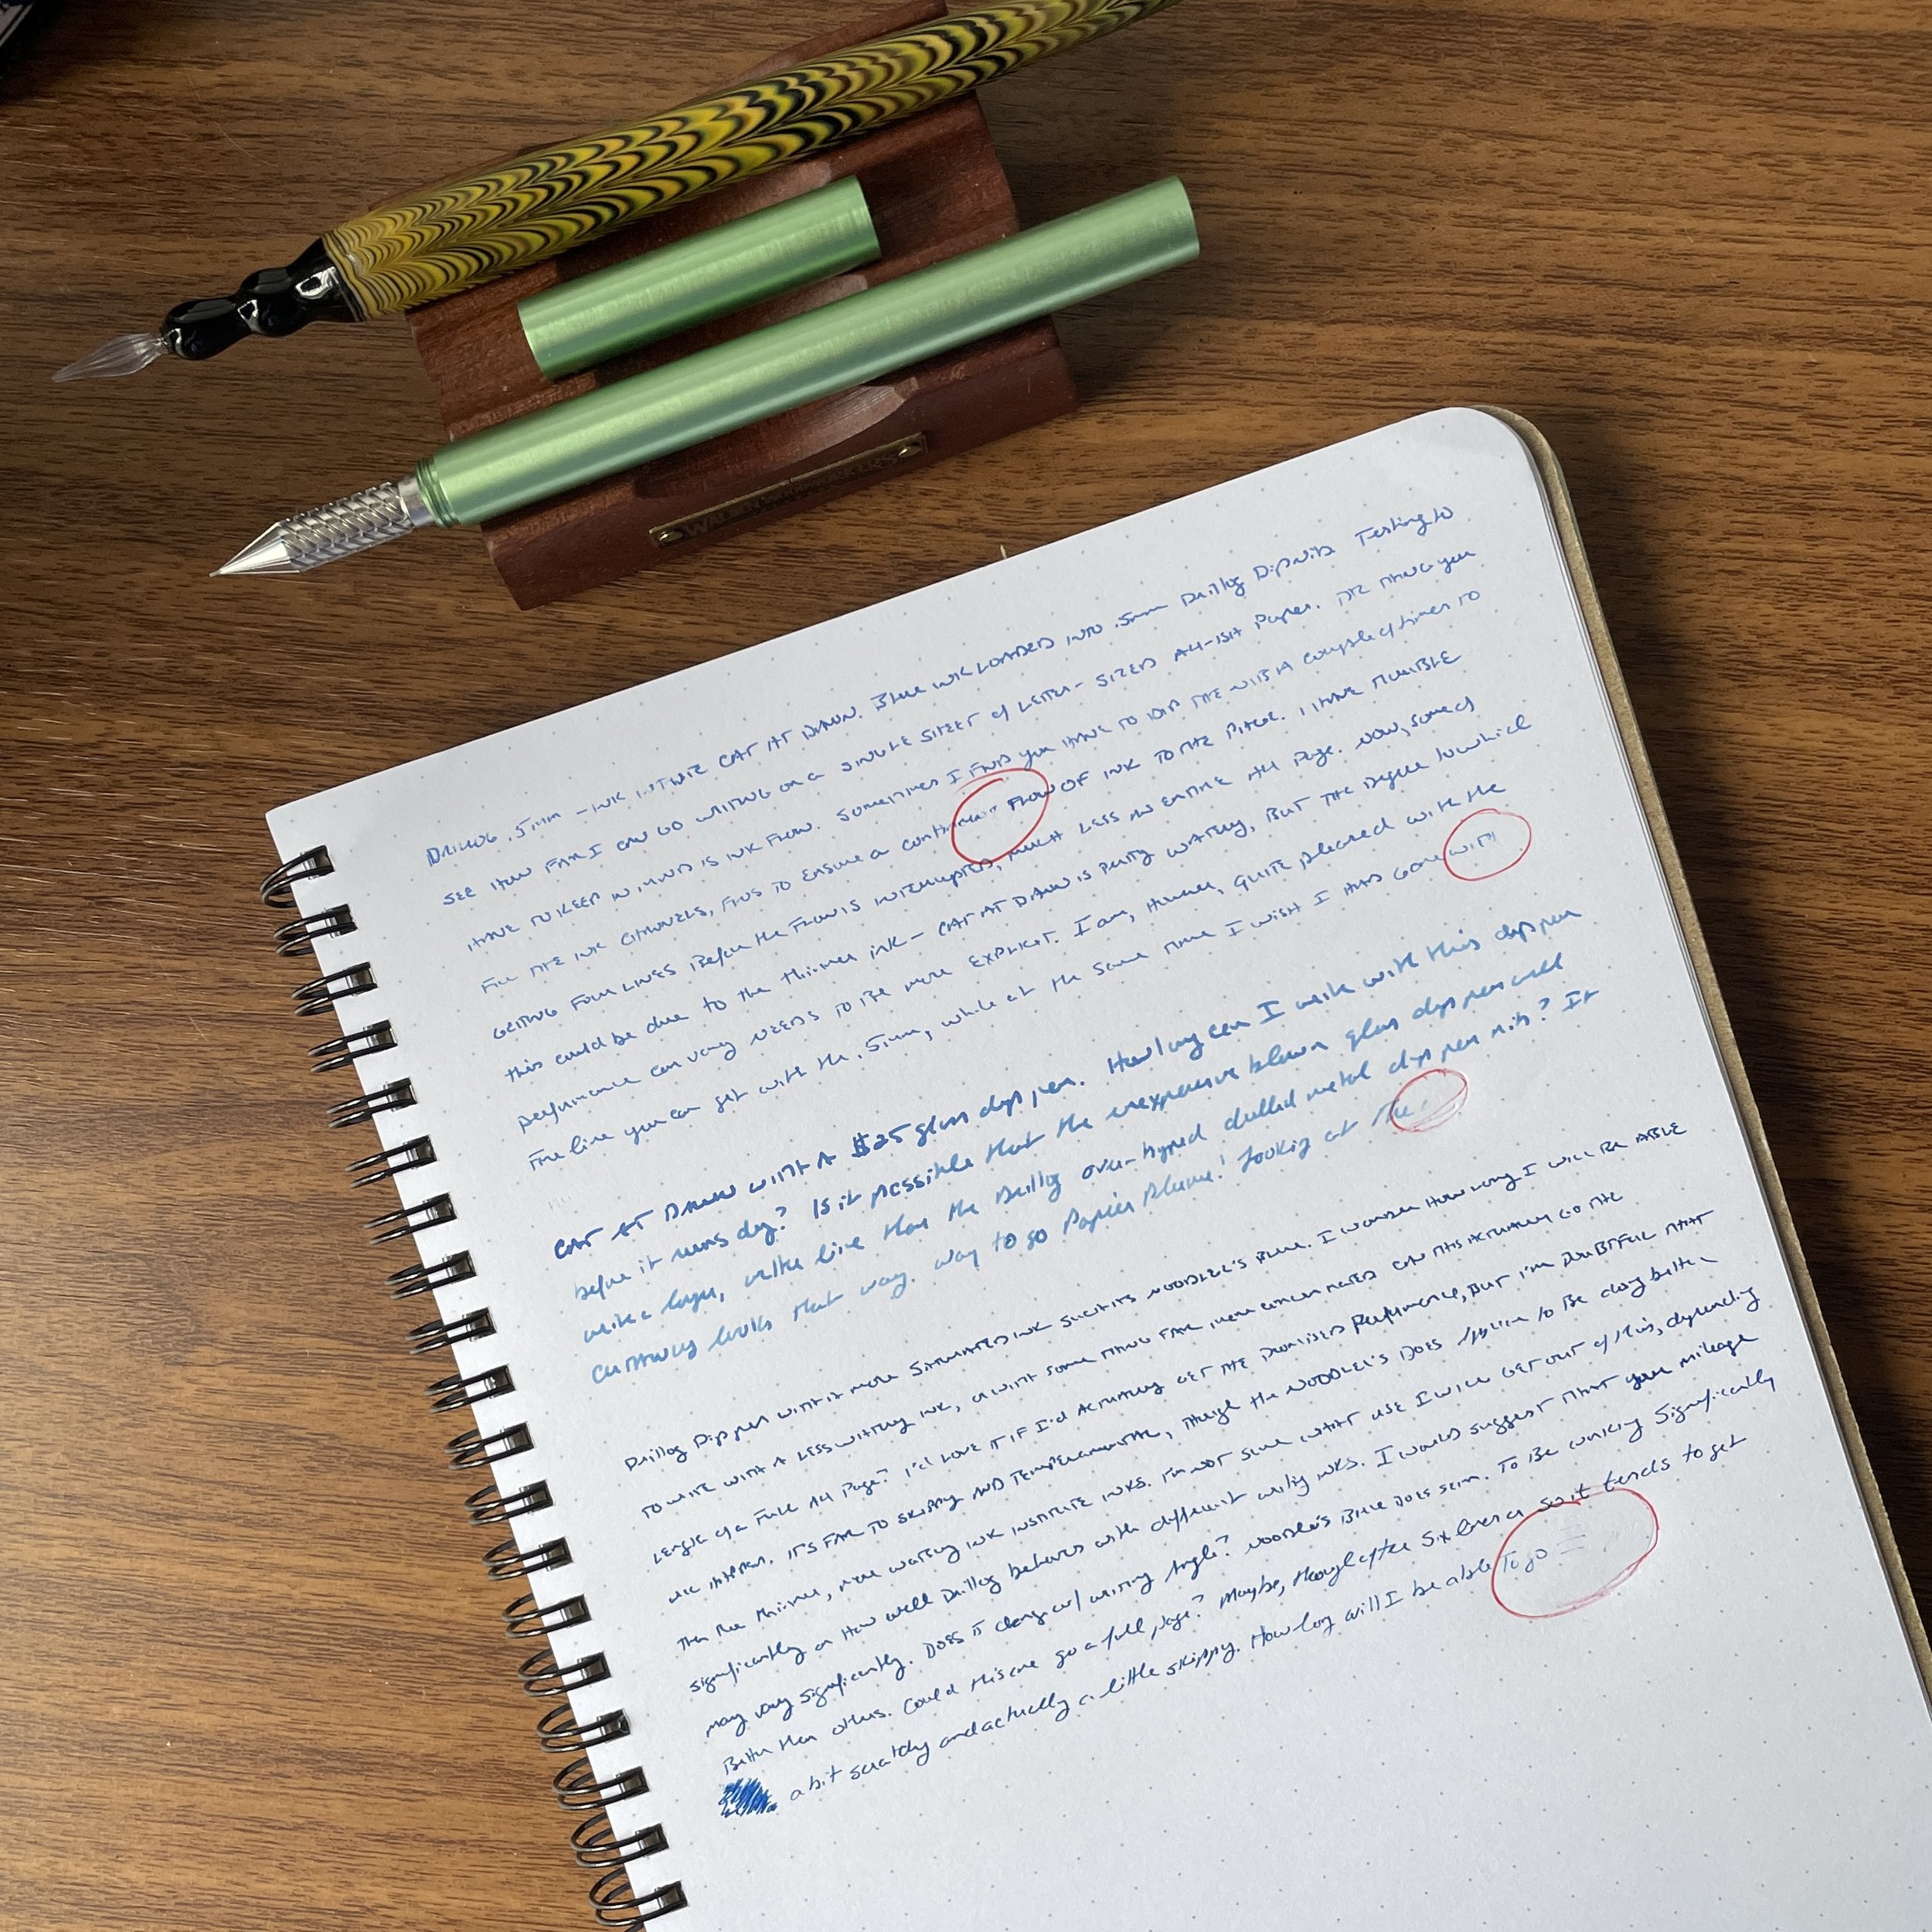 WALDEN WOODWORKERS
DRILLOG .5mm - INK INSTITUTE CAT AT DAWN. Blue INK LOADED INTO .5mm Drillog Dipnib Testing to
SEE HOW FAR I CAN GO WRITING ON a SINGLE SHEET of LETTER-SIZED A4-ISH Paper. THE THING you
HAVE TO KEEP IN MIND IS INK FLOW. Sometimes I FIND you HAVE TO DIP THE NIB A couple of times to
Fill THE INK CHANNELS, THUS TO Ensure a continuous FLOW OF INK TO THE Paper. I HAVE TROUBLE
GETTING FOUR LINES Before the FLOW IS INTERRUPTED, MUCH LESS AN ENTIRE A4 Page. Now, some of
this could be due to the thinner ink - CAT AT DAWN is pretty watery, BUT THE Degree to which
performance can vary NEEDS TO BE more EXPLICIT. I am, However, QUITE pleased with the
Fine line you can get with the .5mm, while at the same time I wish I HAD GONE WITH
CAT AT DAWN WITH A $25 glass dip pen. How long can I write with this dip pen
before it runs dry? Is it possible that the inexpensive blown glass dip pen will
write a longer, wetter line than the Drillog over-hyped drilled metal dip pen nib? It
CERTAINLY looks that way. Way to go Papier Plume! Looking at the
Drillog Dip pen with a more SATURATED INK SUCH AS NOODLER'S Blue. I wonder How long I WILL BE ABLE
TO WRITE WITH A LESS watery INK, CAN THIS ACTUALLY GO THE
Length of a Full A4 Page? I'd LOVE IT IF I'd ACTUALLY GET THE PROMISED Performance, BUT I'm DOUBTFUL THAT
IT'S FAR TO SKIPPY AND TEMPERAMENTAL, Though the NOODLER'S DOES Appear to Be doing better
Than the thinner, more watery INK INSTITUTE INKS. I'm NOT SURE WHAT USE I WILL GET OUT of this, depending
significantly on How well Drillog behaves with different watery INKS. I would suggest THAT your mileage
may vary significantly. DOES IT change w/ writing Angle? Noodler's Blue DOES seem. To Be working Significantly
Better than others. Could this one go a full page? Maybe, though after six lines or so it tends to get
a bit scratchy and actually a little skippy. How long will I be able to go